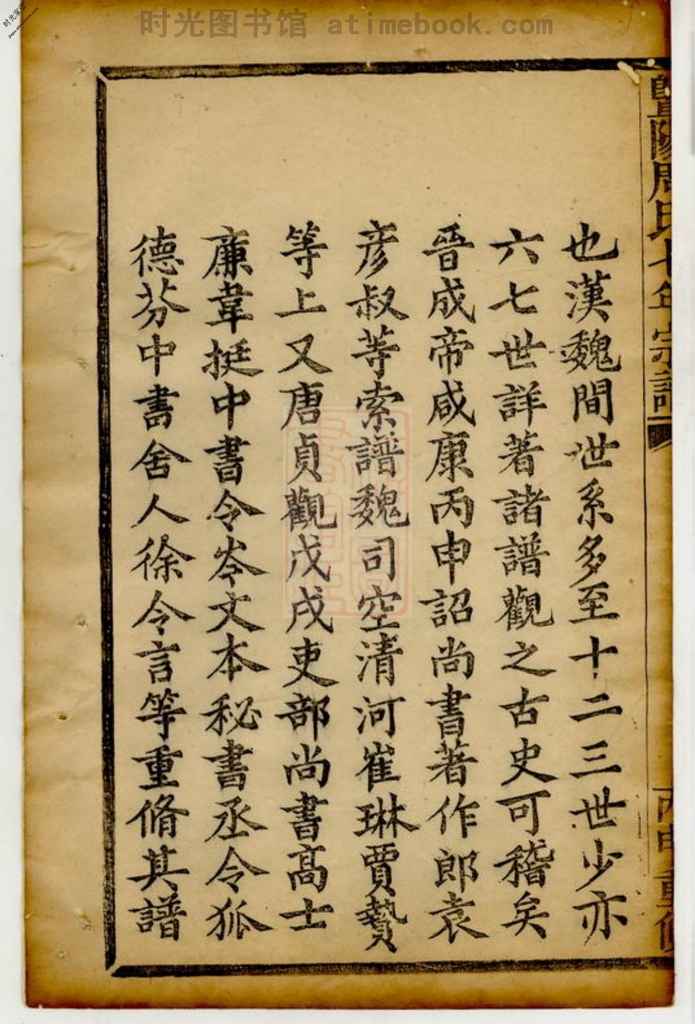 时光图书馆 atimebook.com
暨陽周氏七年宗譜
丙申重修
也漢魏間世系多至十二三世少亦
六七世詳著諸譜觀之古史可稽矣
晉成帝咸康丙申詔尚書著作郎袁
彦叔等索譜魏司空清河崔琳賈贄
等上又唐貞觀戊戌吏部尚書髙士
廉韋挺中書令岑文本秘書丞令狐
德芬中書舍人徐令言等重脩其譜